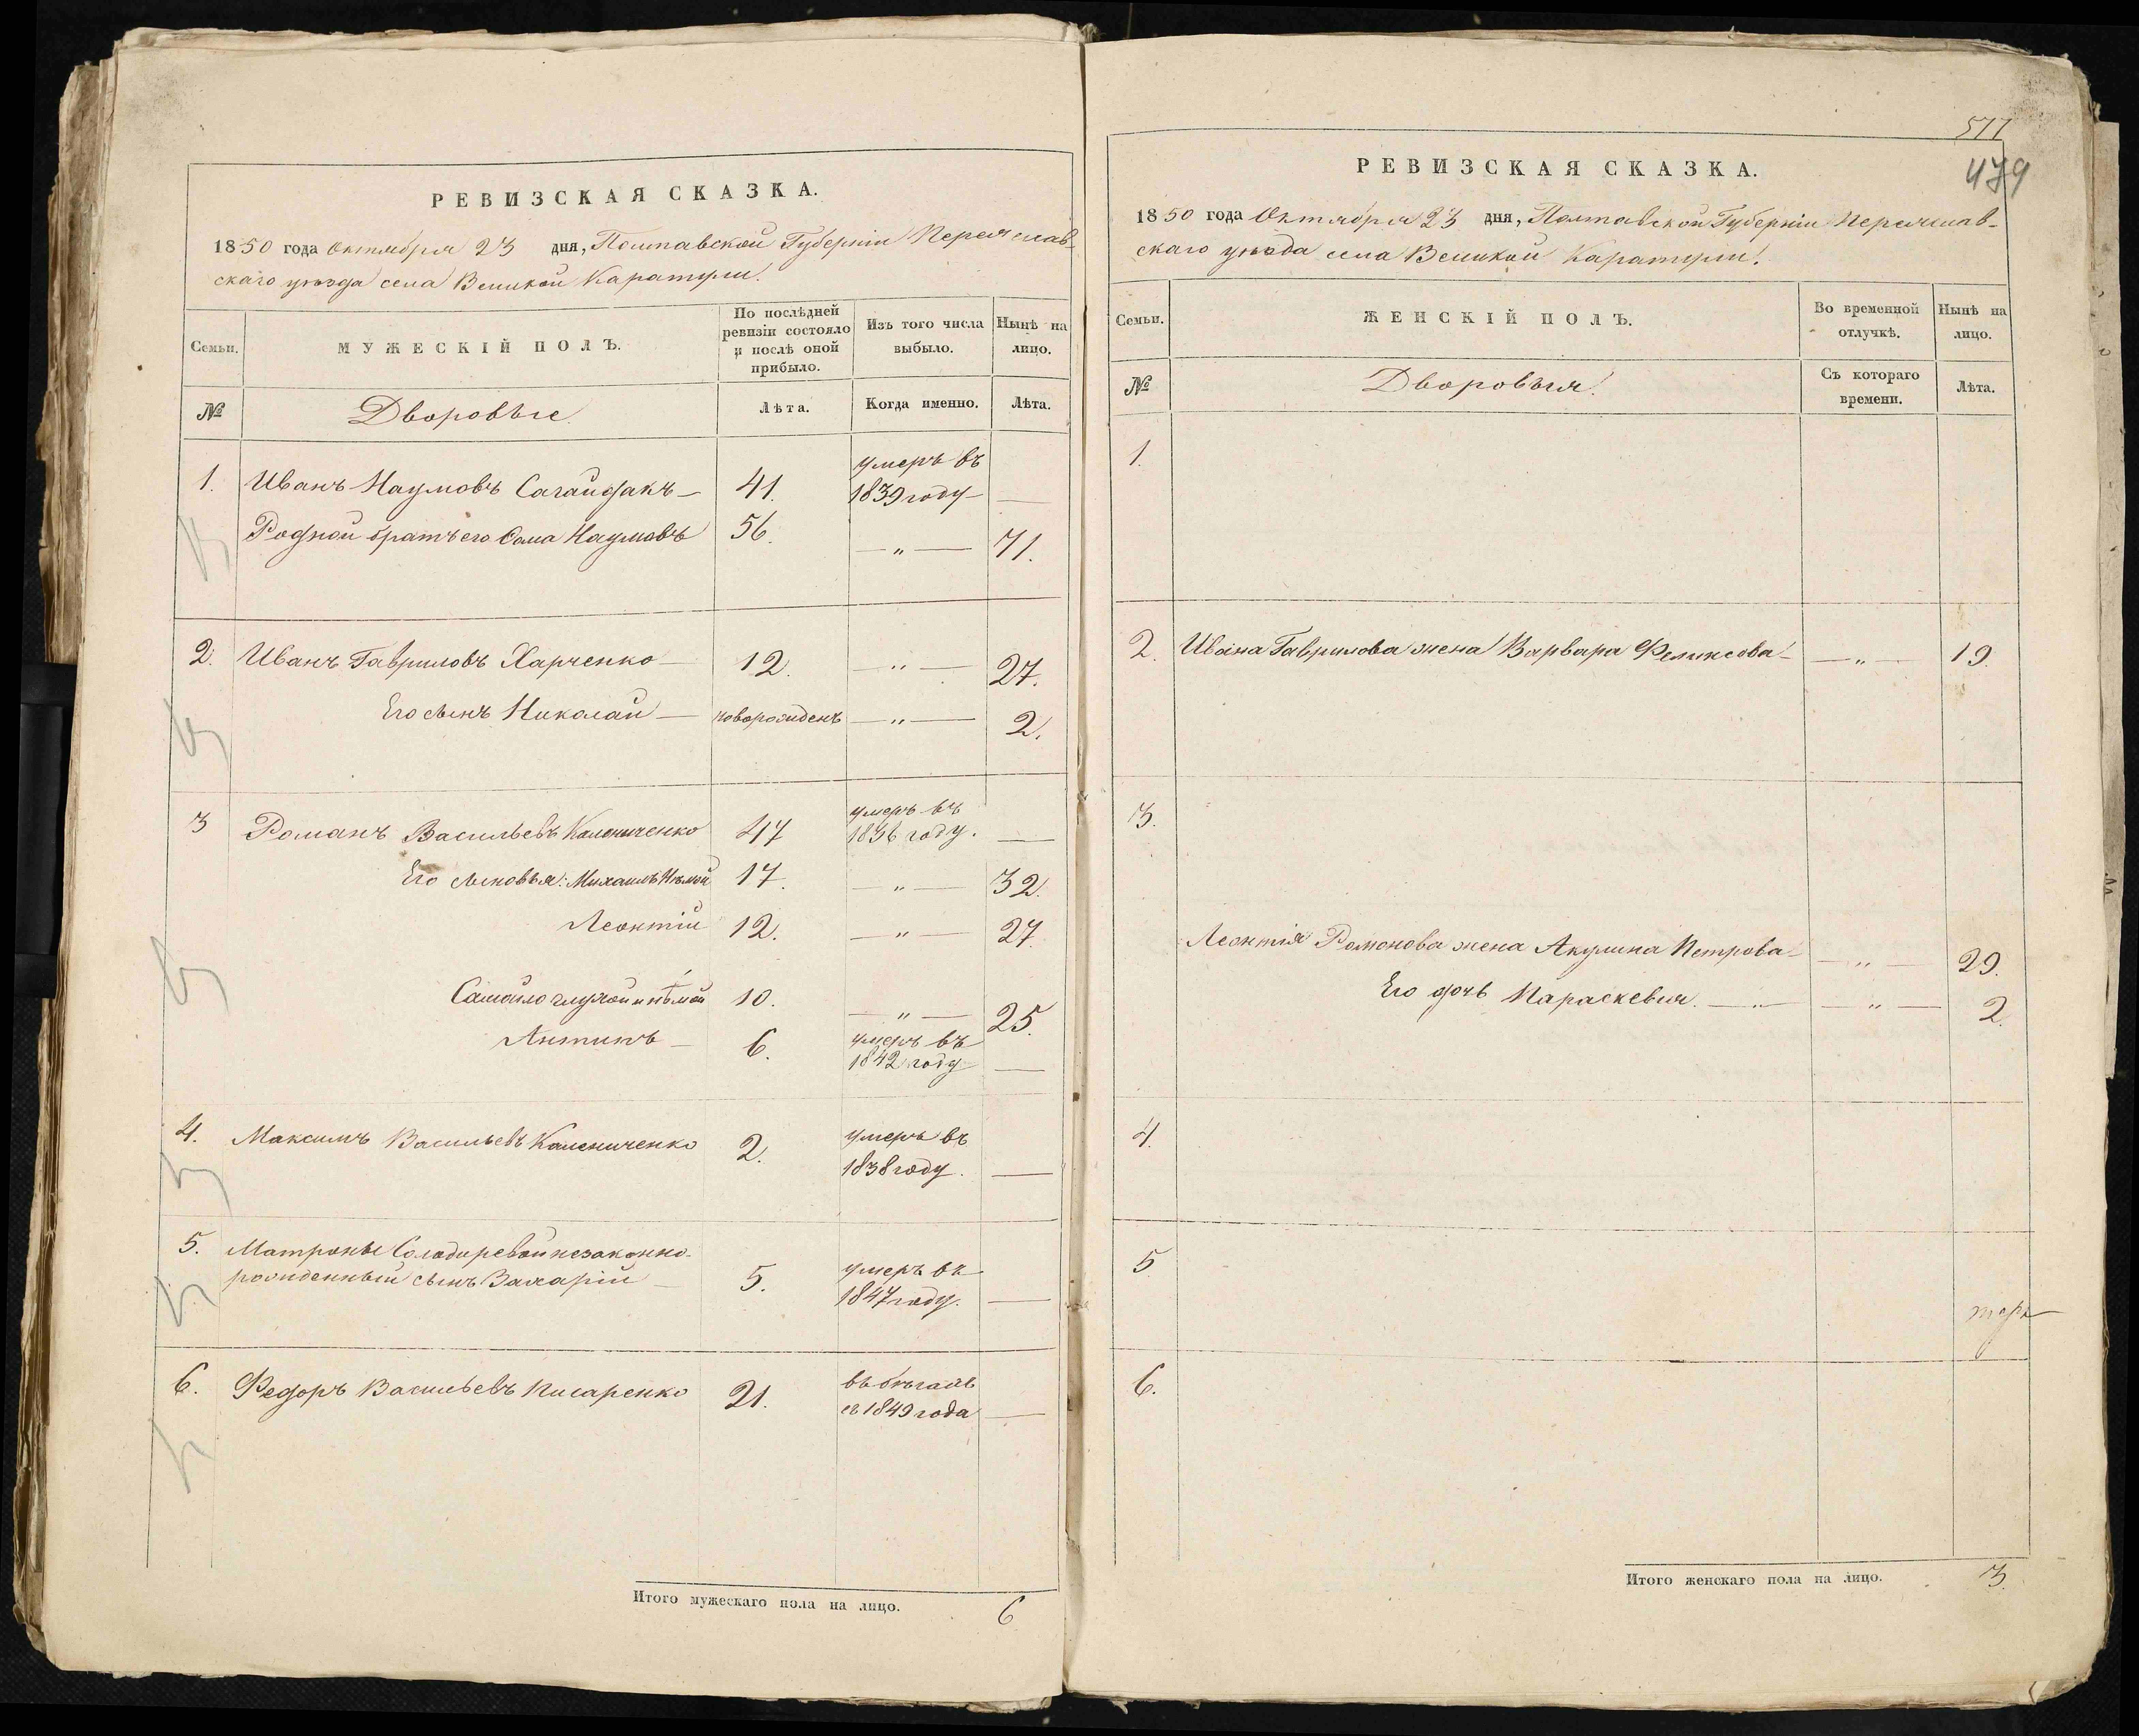 РЕВИЗСКАЯ СКАЗКА.
1850 года Октября 23 дня, Полтавской Губерніи Переяслав-
скаго уѣзда села Великой Каратули.
Семьи.
МУЖЕСКІЙ ПОЛЪ.
По послѣдней ревизіи состояло и послѣ оной прибыло.
Изъ того числа выбыло.
Нынѣ на лицо.
№
Дворовые
Лѣта.
Когда именно.
Лѣта.
умеръ въ
1. Иванъ Наумовъ Сагайдакъ — 41. 1839 году —
Родной братъ его Сава Наумовъ 56. — „ — 71.
2. Иванъ Гавриловъ Харченко — 12. — „ — 27.
Его сынъ Николай — новорожденъ — „ — 2.
умеръ въ
3 Романъ Васильевъ Калениченко 47 1836 году. —
Его сыновья: Михаилъ Нѣмой 17. — „ — 32.
Леонтій 12. — „ — 27.
Самойло глухой и нѣмой 10. — „ — 25.
Антипъ — 6. умеръ въ
1842 году —
4. Максимъ Васильевъ Калениченко 2. умеръ въ
1838 году. —
5. Матроны Солодаревой незаконно-
рожденный сынъ Захарій — 5. умеръ въ
1847 году. —
6. Федоръ Васильевъ Писаренко 21. въ бѣгахъ
съ 1849 года —
Итого мужескаго пола на лицо. 6
577
479
РЕВИЗСКАЯ СКАЗКА.
1850 года Октября 23 дня, Полтавской Губерніи Переяслав-
скаго уѣзда села Великой Каратули.
Семьи.
ЖЕНСКІЙ ПОЛЪ.
Во временной отлучкѣ.
Нынѣ на лицо.
№
Дворовыя
Съ котораго времени.
Лѣта.
1.
2. Ивана Гаврилова жена Варвара Феликсова — — „ — 19.
3.
Леонтія Романова жена Акулина Петрова — — „ — 29.
Его дочь Параскевия. — „ — — „ — 2.
4.
5
6.
Итого женскаго пола на лицо. 3.